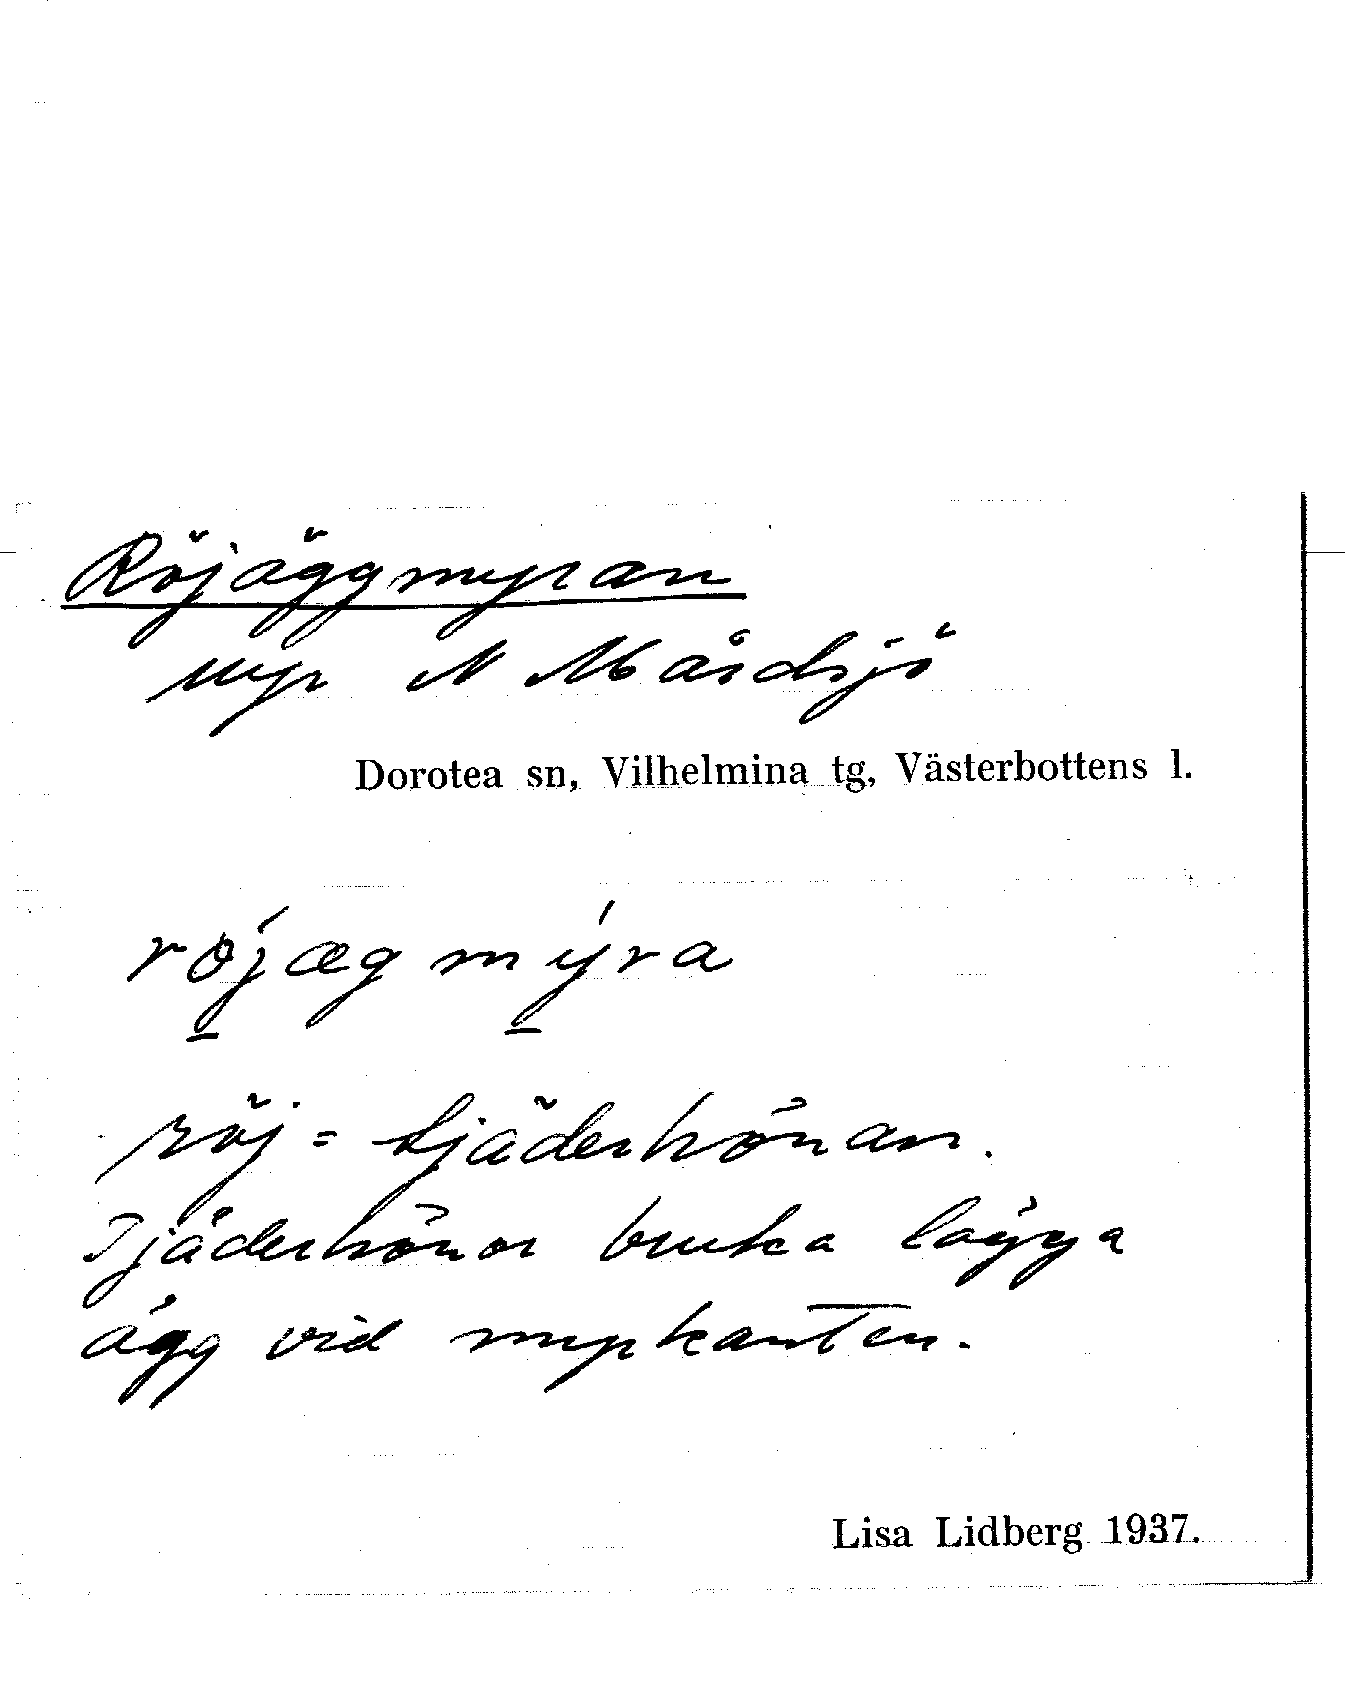 Röjäggmyran
myr N Mårdsjö
Dorotea sn, Vilhelmina tg, Västerbottens l.
röjægmýra
röj = tjäderhönan.
Tjäderhönor bruka lägga
ägg vid myrkanten.
Lisa Lidberg 1937.